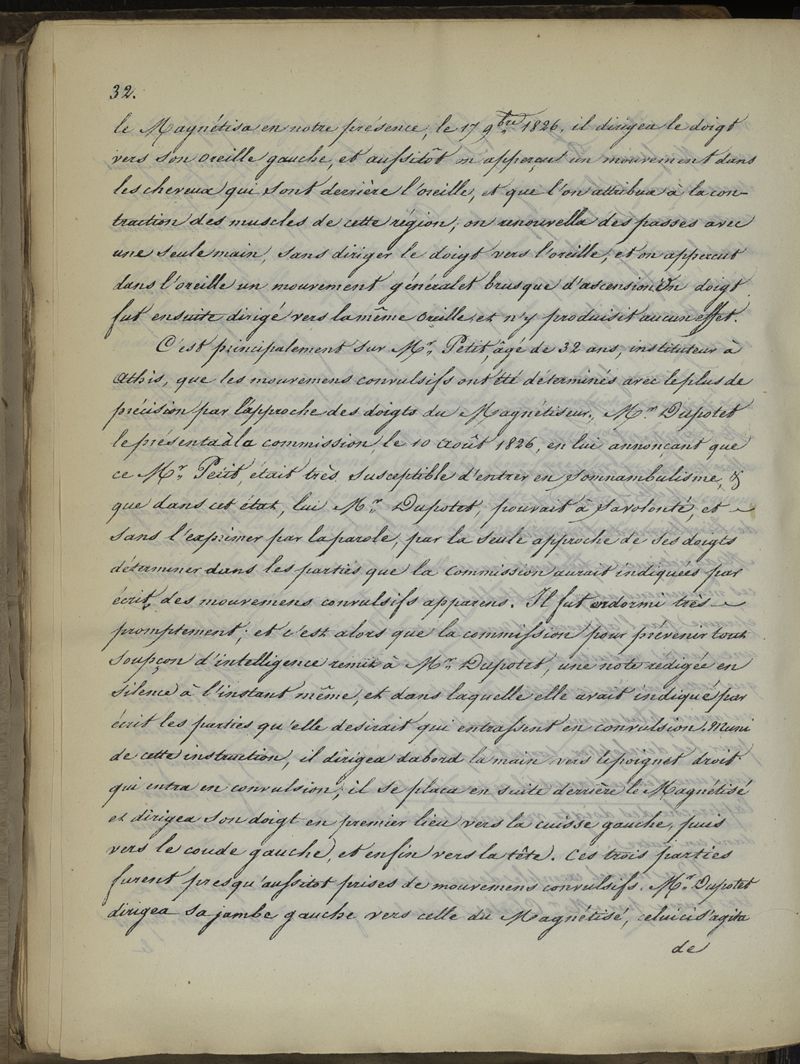 32.
le Magnétisa en notre présence, le 17 9bre 1826, il dirigea le doigt
vers son oreille gauche, et aussitôt on apperçut un mouvement dans
les cheveux qui sont derrière l'oreille, et que l'on attribua à la con-
traction des muscles de cette région; on renouvella des passes avec
une seule main, sans diriger le doigt vers l'oreille, et on apperçut
dans l'oreille un mouvement général et brusque d'ascension. Un doigt
fut ensuite dirigé vers la même oreille et n'y produisit aucun effet.
C'est principalement sur Mr. Petit, âgé de 32 ans, instituteur à
Athis, que les mouvemens convulsifs ont été déterminés avec le plus de
précision par l'approche des doigts du Magnétiseur. Mr. Dupotet
le présenta à la commission, le 10 Août 1826, en lui annonçant que
ce Mr. Petit, était très susceptible d'entrer en somnambulisme, &
que dans cet état, lui Mr. Dupotet, pouvait à sa volonté, et
sans l'exprimer par la parole, par la seule approche de ses doigts
déterminer dans les parties que la Commission aurait indiquées par
écrit, des mouvemens convulsifs apparens. Il fut endormi très
promptement; et c'est alors que la commission pour prévenir tout
soupçon d'intelligence remit à Mr. Dupotet, une note redigée en
silence à l'instant même, et dans laquelle elle avait indiqué par
écrit les parties qu'elle desirait qui entrassent en convulsion. Muni
de cette instruction, il dirigea dabord la main vers le poignet droit
qui entra en convulsion; il se plaça en suite derrière le Magnétisé
et dirigea son doigt en premier lieu vers la cuisse gauche, puis
vers le coude gauche, et enfin vers la tête. Ces trois parties
furent presqu'aussitot prises de mouvemens convulsifs. Mr. Dupotet
dirigea sa jambe gauche vers celle du Magnétisé, celuici s'agita
de